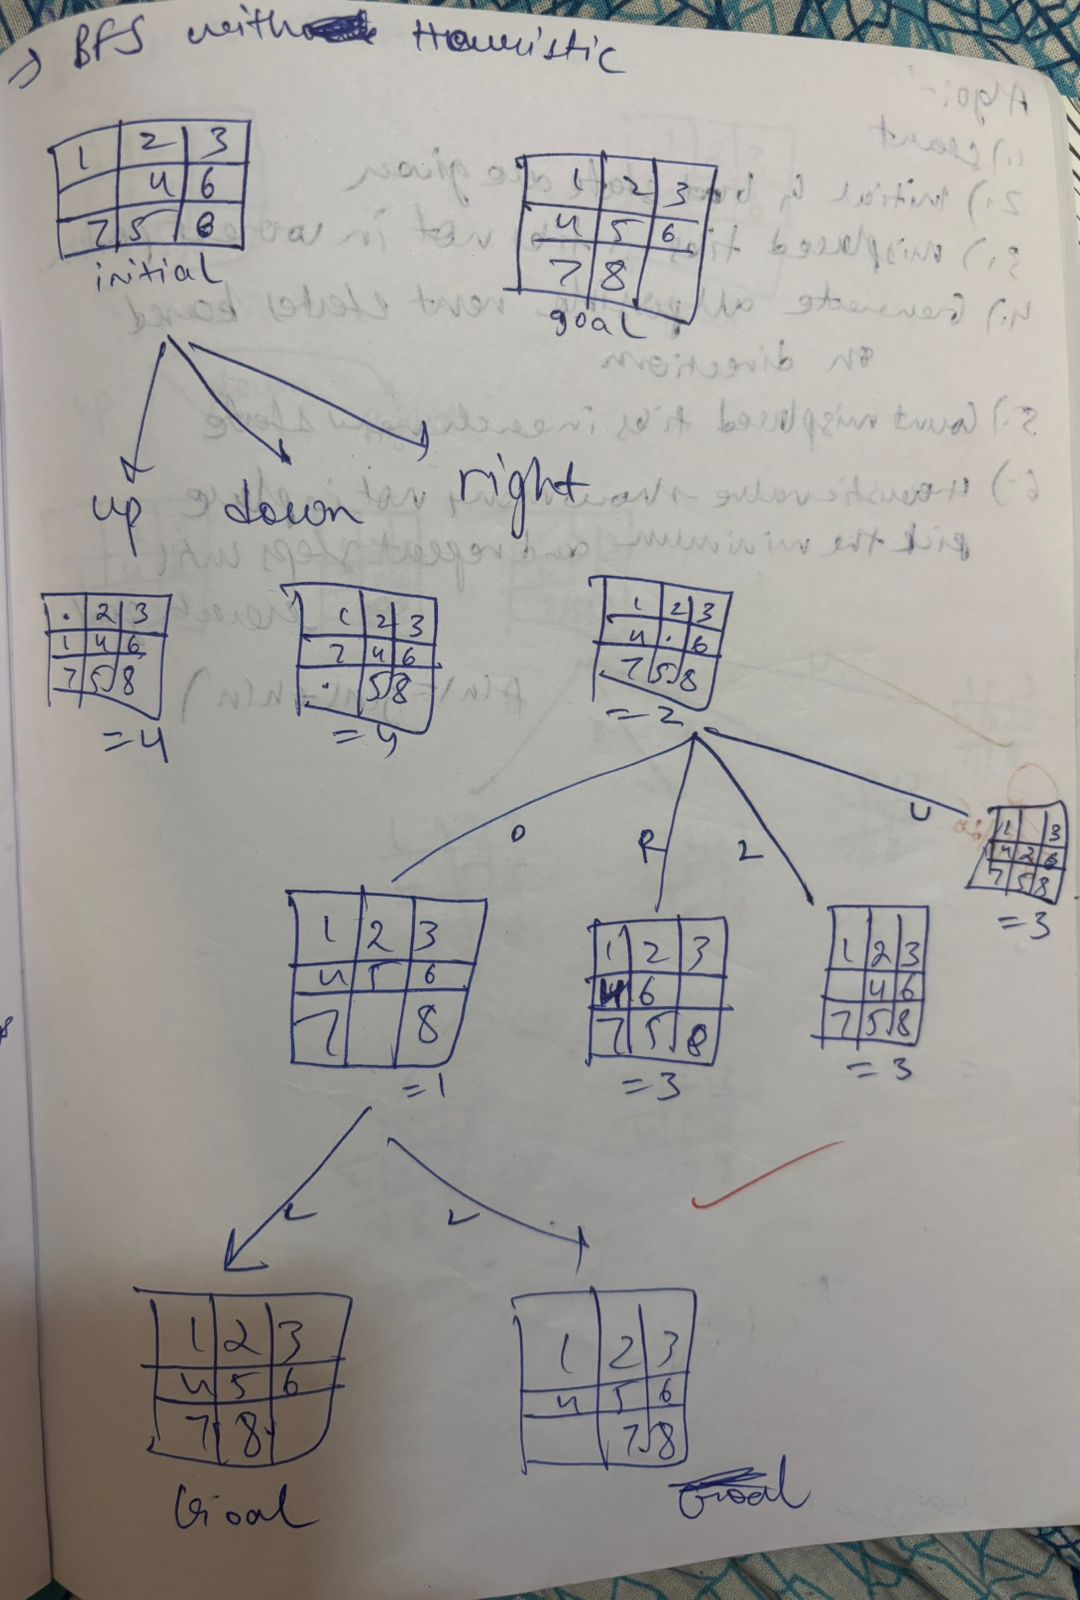 → BFS with Heuristic
1 2 3
4 6
7 5 8
initial
1 2 3
4 5 6
7 8
goal
up down right
. 2 3
1 4 6
7 5 8
=4
1 2 3
7 4 6
. 5 8
=4
1 2 3
4 . 6
7 5 8
=2
D R L U
1 3
4 2 6
7 5 8
=3
1 2 3
4 5 6
7 8
=1
1 2 3
4 6
7 5 8
=3
1 2 3
4 6
7 5 8
=3
L L
1 2 3
4 5 6
7 8
Goal
1 2 3
4 5 6
7 8